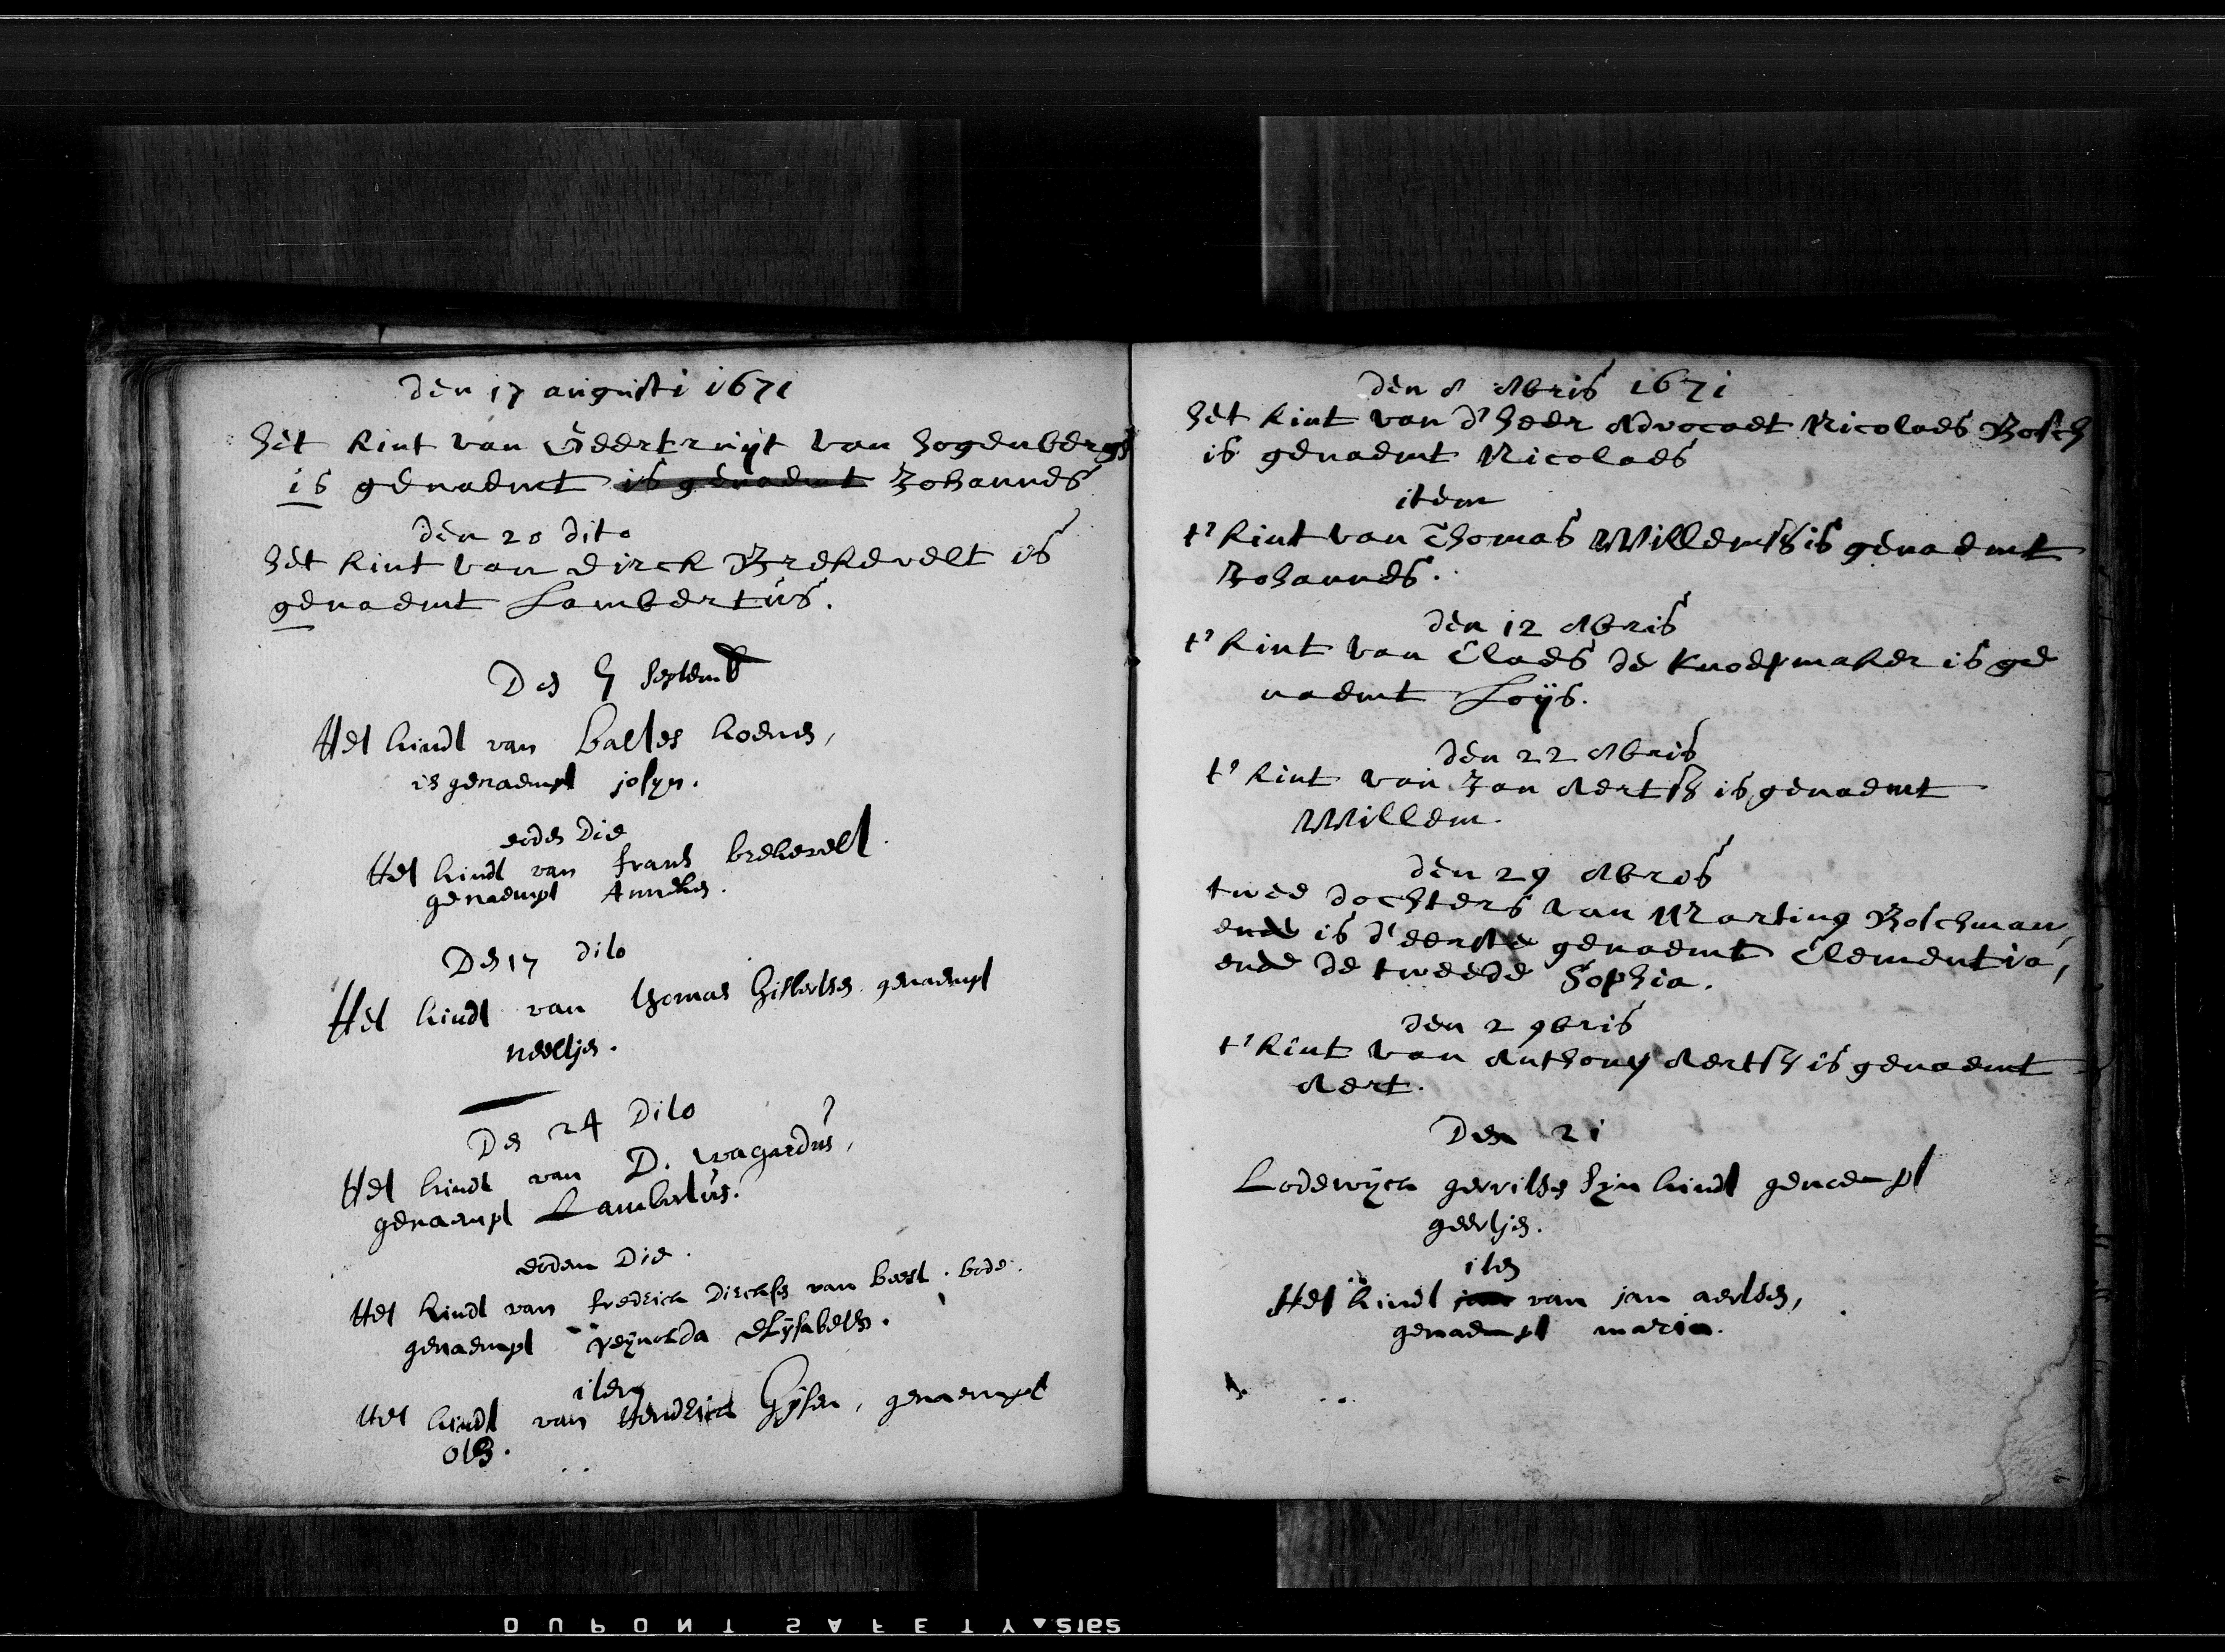 den 17 augusti 1671
het kint van Geertruijt van hogenbergh
is genaemt is genaemt Johannes
den 20 dito
het kint van dirck Brekevelt is
genaemt Lambertus.
Den 7 septemb
Het kindt van baltes koenen,
is genaempt josyn.
eoden die
Het kindt van frans brekevelt
genaempt Anneken.
Den 17 dito
Het kindt van thomas Gisbertsen genaempt
neeltjen.
Den 24 Dito
Het kindt van D. wagardus,
genaempt Lambertus.
eodem Die.
Het kindt van fredrick Dircksen van beest. bode.
genaempt reynolda elysabeth.
item
Het kindt van Hendrick Gijsen, genaempt
den 8 8bris 1671
het kint van d' heer Advocaet Nicolaes Bosch
is genaemt Nicolaes
item
t' kint van Thomas Willemss is genaemt
Johannes.
den 12 8bris
t' kint van Claes de knoepmaker is ge
naemt Loijs.
den 22 8bris
t' kint van Jan Aertss is genaemt
Willem.
den 29 8bris
twee dochters van Marting Boschman,
ende is d' eerste genaemt Clementia,
ende de tweede Sophia.
den 2 9bris
t' kint van Anthony Aertss is genaemt
Aert.
Den 21
Lodewijck gerritsen syn kindt genaempt
geertjen.
iten
Het kindt van jan aertsen,
genaempt maria.
DUPONT SAFETY 5165